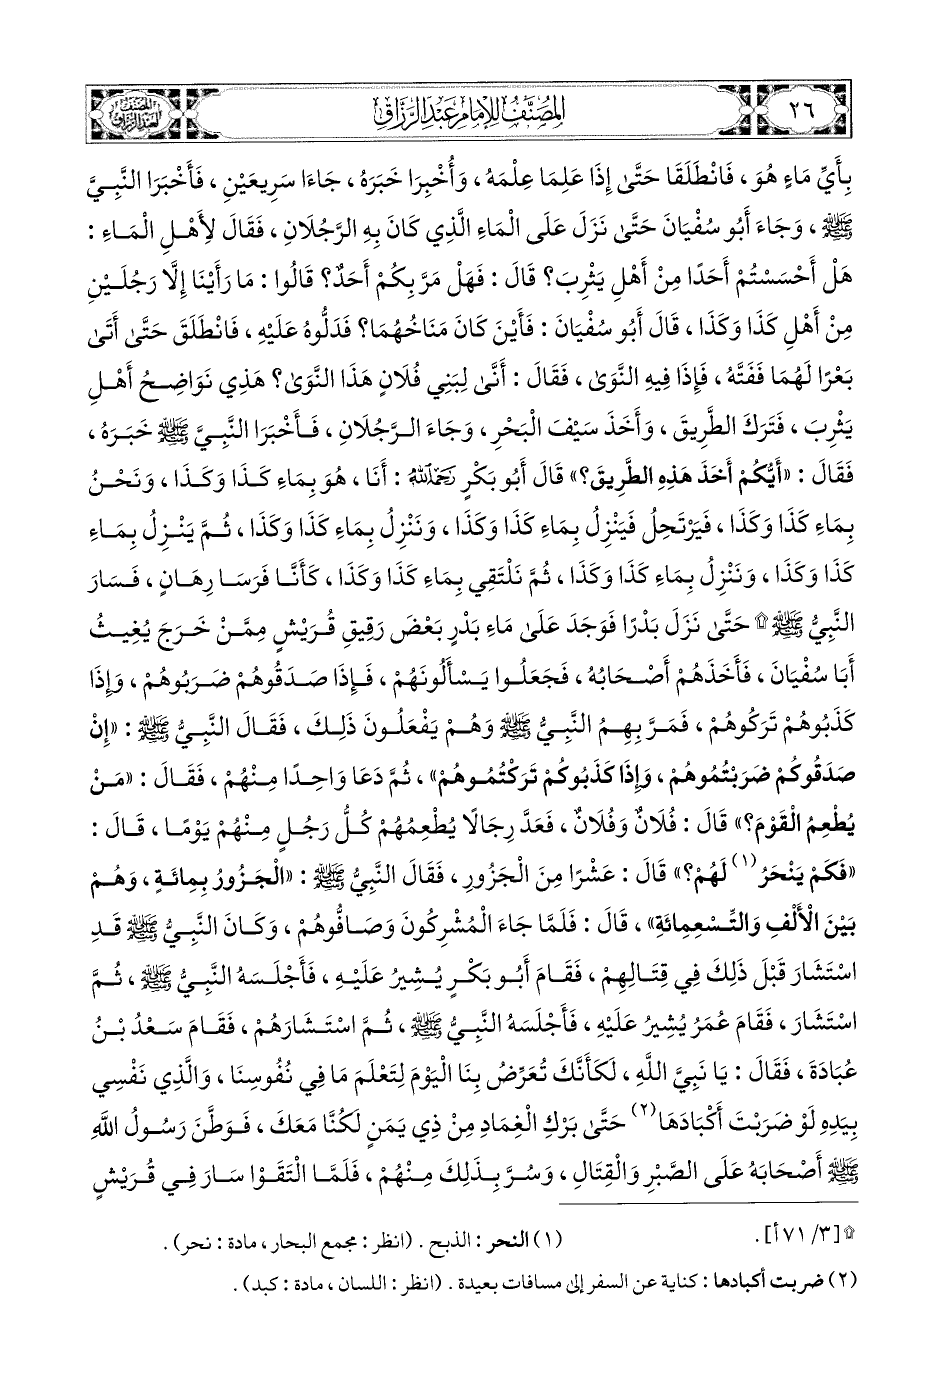 ٢٦
المصنف للإمام عبد الرزاق
المصنف لعبد الرزاق
بِأَيِّ مَاءٍ هُوَ ، فَانْطَلَقَا حَتَّىٰ إِذَا عَلِمَا عِلْمَهُ ، وَأُخْبِرَا خَبَرَهُ ، جَاءَا سَرِيعَيْنِ ، فَأَخْبَرَا النَّبِيَّ
ﷺ ، وَجَاءَ أَبُو سُفْيَانَ حَتَّىٰ نَزَلَ عَلَى الْمَاءِ الَّذِي كَانَ بِهِ الرَّجُلَانِ ، فَقَالَ لِأَهْلِ الْمَاءِ :
هَلْ أَحْسَسْتُمْ أَحَدًا مِنْ أَهْلِ يَثْرِبَ؟ قَالَ : فَهَلْ مَرَّ بِكُمْ أَحَدٌ؟ قَالُوا : مَا رَأَيْنَا إِلَّا رَجُلَيْنِ
مِنْ أَهْلِ كَذَا وَكَذَا ، قَالَ أَبُو سُفْيَانَ : فَأَيْنَ كَانَ مَنَاخُهُمَا؟ فَدَلُّوهُ عَلَيْهِ ، فَانْطَلَقَ حَتَّىٰ أَتَىٰ
بَعْرًا لَهُمَا فَفَتَّهُ ، فَإِذَا فِيهِ النَّوَىٰ ، فَقَالَ : أَنَّىٰ لِبَنِي فُلَانٍ هَذَا النَّوَىٰ؟ هَذِي نَوَاضِحُ أَهْلِ
يَثْرِبَ ، فَتَرَكَ الطَّرِيقَ ، وَأَخَذَ سَيْفَ الْبَحْرِ ، وَجَاءَ الرَّجُلَانِ ، فَأَخْبَرَا النَّبِيَّ ﷺ خَبَرَهُ ،
فَقَالَ : «أَيُّكُمْ أَخَذَ هَذِهِ الطَّرِيقَ؟» قَالَ أَبُو بَكْرٍ رَحِمَهُ اللَّهُ : أَنَا ، هُوَ بِمَاءِ كَذَا وَكَذَا ، وَنَحْنُ
بِمَاءِ كَذَا وَكَذَا ، فَيَرْتَحِلُ فَيَنْزِلُ بِمَاءِ كَذَا وَكَذَا ، وَنَنْزِلُ بِمَاءِ كَذَا وَكَذَا ، ثُمَّ يَنْزِلُ بِمَاءِ
كَذَا وَكَذَا ، وَنَنْزِلُ بِمَاءِ كَذَا وَكَذَا ، ثُمَّ نَلْتَقِي بِمَاءِ كَذَا وَكَذَا ، كَأَنَّا فَرَسَا رِهَانٍ ، فَسَارَ
النَّبِيُّ ﷺ ۩ حَتَّىٰ نَزَلَ بَدْرًا فَوَجَدَ عَلَىٰ مَاءِ بَدْرٍ بَعْضَ رَقِيقِ قُرَيْشٍ مِمَّنْ خَرَجَ يُغِيثُ
أَبَا سُفْيَانَ ، فَأَخَذَهُمْ أَصْحَابُهُ ، فَجَعَلُوا يَسْأَلُونَهُمْ ، فَإِذَا صَدَقُوهُمْ ضَرَبُوهُمْ ، وَإِذَا
كَذَبُوهُمْ تَرَكُوهُمْ ، فَمَرَّ بِهِمُ النَّبِيُّ ﷺ وَهُمْ يَفْعَلُونَ ذَلِكَ ، فَقَالَ النَّبِيُّ ﷺ : «إِنْ
صَدَقُوكُمْ ضَرَبْتُمُوهُمْ ، وَإِذَا كَذَبُوكُمْ تَرَكْتُمُوهُمْ» ، ثُمَّ دَعَا وَاحِدًا مِنْهُمْ ، فَقَالَ : «مَنْ
يُطْعِمُ الْقَوْمَ؟» قَالَ : فُلَانٌ وَفُلَانٌ ، فَعَدَّ رِجَالًا يُطْعِمُهُمْ كُلُّ رَجُلٍ مِنْهُمْ يَوْمًا ، قَالَ :
«فَكَمْ يَنْحَرُ(١) لَهُمْ؟» قَالَ : عَشْرًا مِنَ الْجَزُورِ ، فَقَالَ النَّبِيُّ ﷺ : «الْجَزُورُ بِمِائَةٍ ، وَهُمْ
بَيْنَ الْأَلْفِ وَالتِّسْعِمِائَةِ» ، قَالَ : فَلَمَّا جَاءَ الْمُشْرِكُونَ وَصَافُّوهُمْ ، وَكَانَ النَّبِيُّ ﷺ قَدِ
اسْتَشَارَ قَبْلَ ذَلِكَ فِي قِتَالِهِمْ ، فَقَامَ أَبُو بَكْرٍ يُشِيرُ عَلَيْهِ ، فَأَجْلَسَهُ النَّبِيُّ ﷺ ، ثُمَّ
اسْتَشَارَ ، فَقَامَ عُمَرُ يُشِيرُ عَلَيْهِ ، فَأَجْلَسَهُ النَّبِيُّ ﷺ ، ثُمَّ اسْتَشَارَهُمْ ، فَقَامَ سَعْدُ بْنُ
عُبَادَةَ ، فَقَالَ : يَا نَبِيَّ اللَّهِ ، لَكَأَنَّكَ تُعَرِّضُ بِنَا الْيَوْمَ لِتَعْلَمَ مَا فِي نُفُوسِنَا ، وَالَّذِي نَفْسِي
بِيَدِهِ لَوْ ضَرَبْتَ أَكْبَادَهَا(٢) حَتَّىٰ بَرْكِ الْغِمَادِ مِنْ ذِي يَمَنٍ لَكُنَّا مَعَكَ ، فَوَطَّنَ رَسُولُ اللَّهِ
ﷺ أَصْحَابَهُ عَلَى الصَّبْرِ وَالْقِتَالِ ، وَسُرَّ بِذَلِكَ مِنْهُمْ ، فَلَمَّا الْتَقَوْا سَارَ فِي قُرَيْشٍ
۩ [٣/ ٧١ أ] .
(١) النحر : الذبح . (انظر : مجمع البحار ، مادة : نحر) .
(٢) ضربت أكبادها : كناية عن السفر إلى مسافات بعيدة . (انظر : اللسان ، مادة : كبد) .